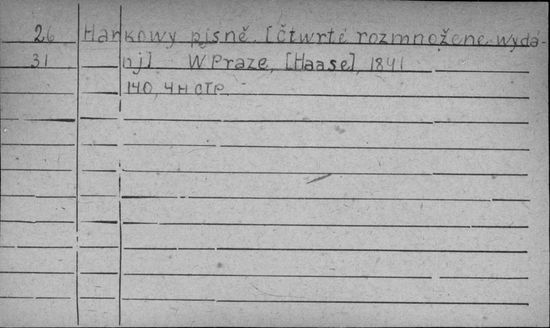 26 Hankowy pjsně. [Čtwrté rozmnožene wydá-
31 nj] W Praze, [Haase], 1841
140, 4 н стр.